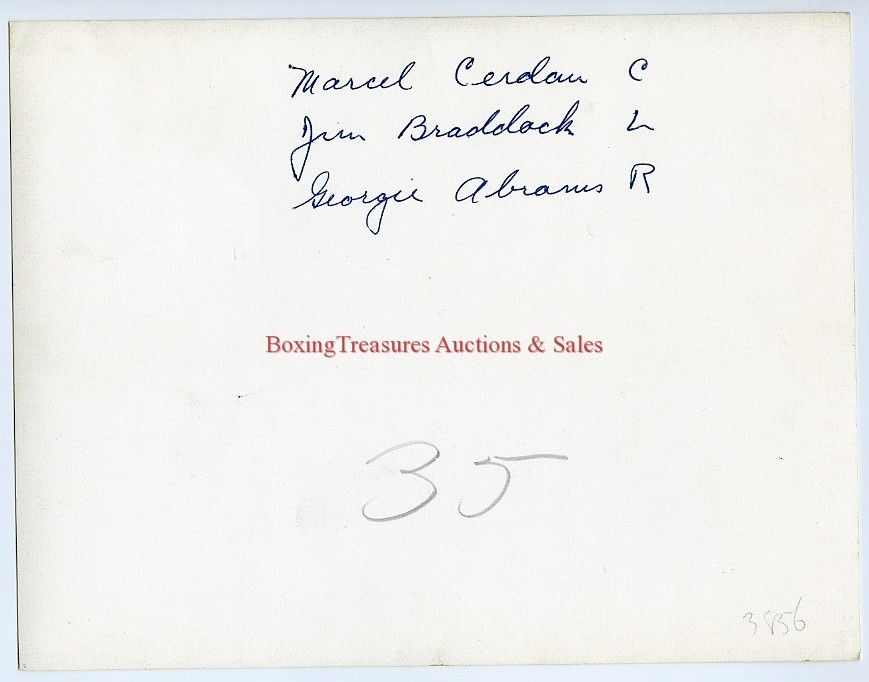 Marcel Cerdan C
Jim Braddock L
Georgie Abrams R
BoxingTreasures Auctions & Sales
35
3856